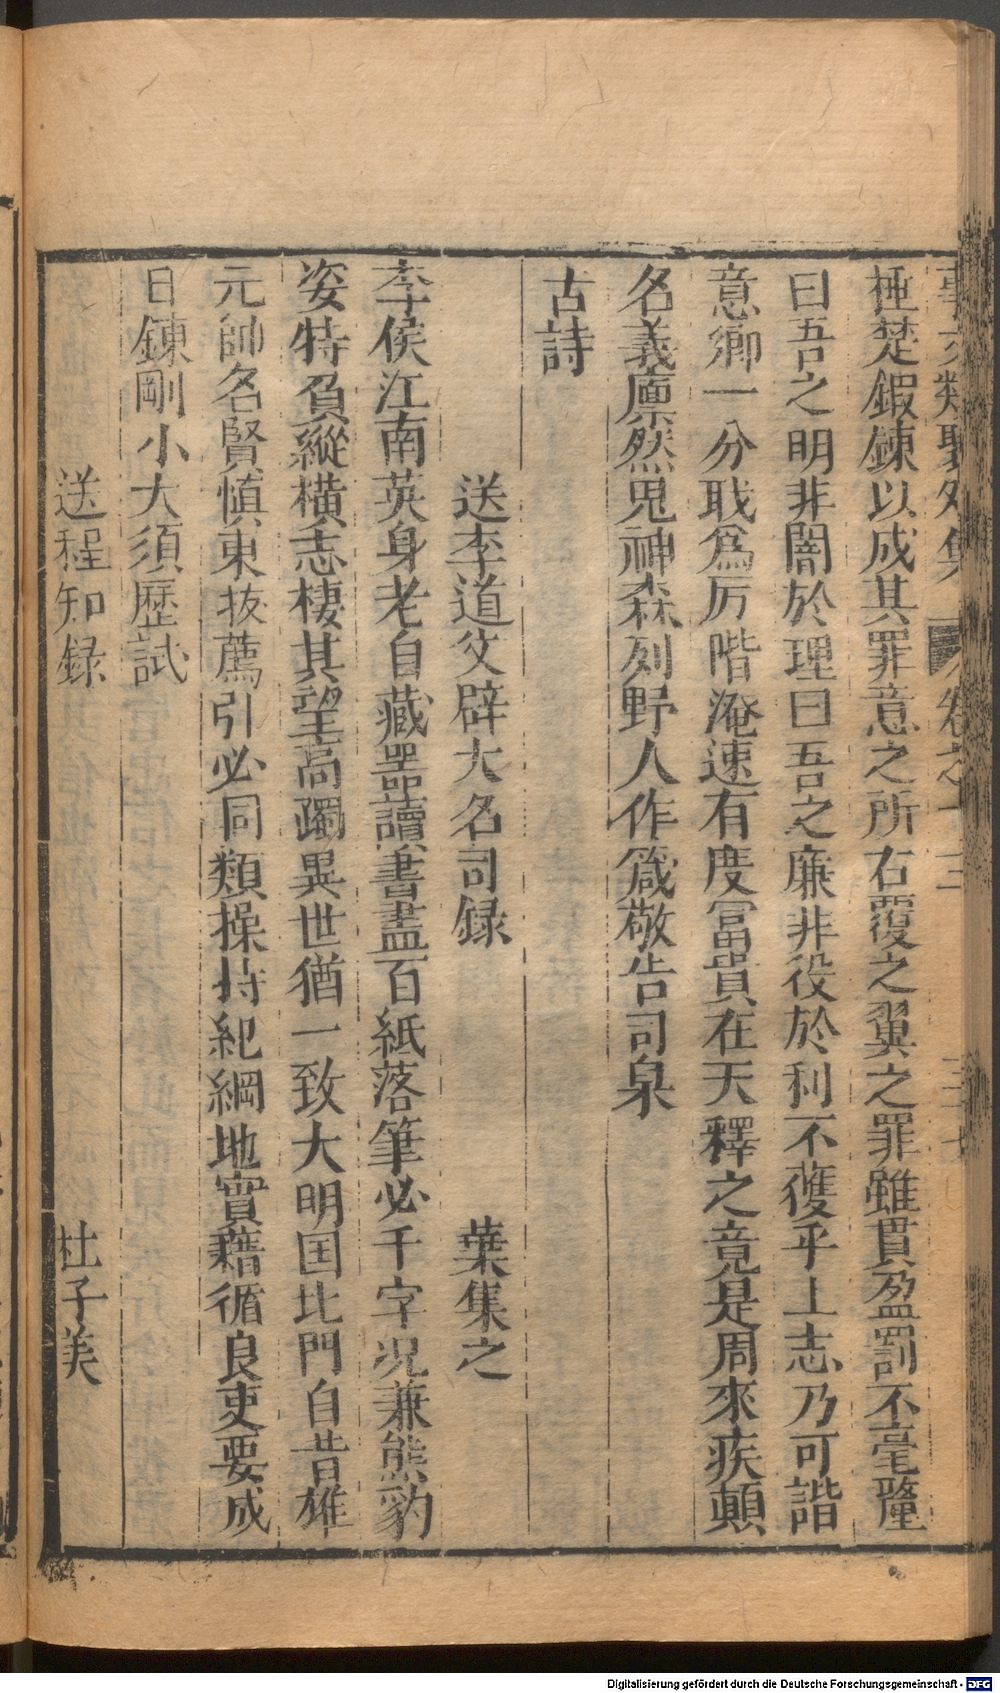 事文類聚外集 卷之十三 三十七
極楚鍜鍊以成其罪意之所右覆之翼之罪雖貫盈罰不毫釐
曰吾之明非闇於理曰吾之廉非役於利不獲乎上志乃可諧
意鄉一分戢為厉階淹速有度冨貴在天釋之竟是周來疾顛
名義廪然鬼神森列野人作箴敬告司臬
古詩
送李道父辟大名司録 葉集之
李侯江南英身老自藏噐讀書盡百紙落筆必千字况兼熊豹
姿特負縱橫志棲其望高躅異世猶一致大明国北門自昔雄
元帥名賢慎柬拔薦引必同類操持紀綱地實藉循良吏要成
日鍊剛小大須歷試
送程知録 杜子美
Digitalisierung gefördert durch die Deutsche Forschungsgemeinschaft - DFG